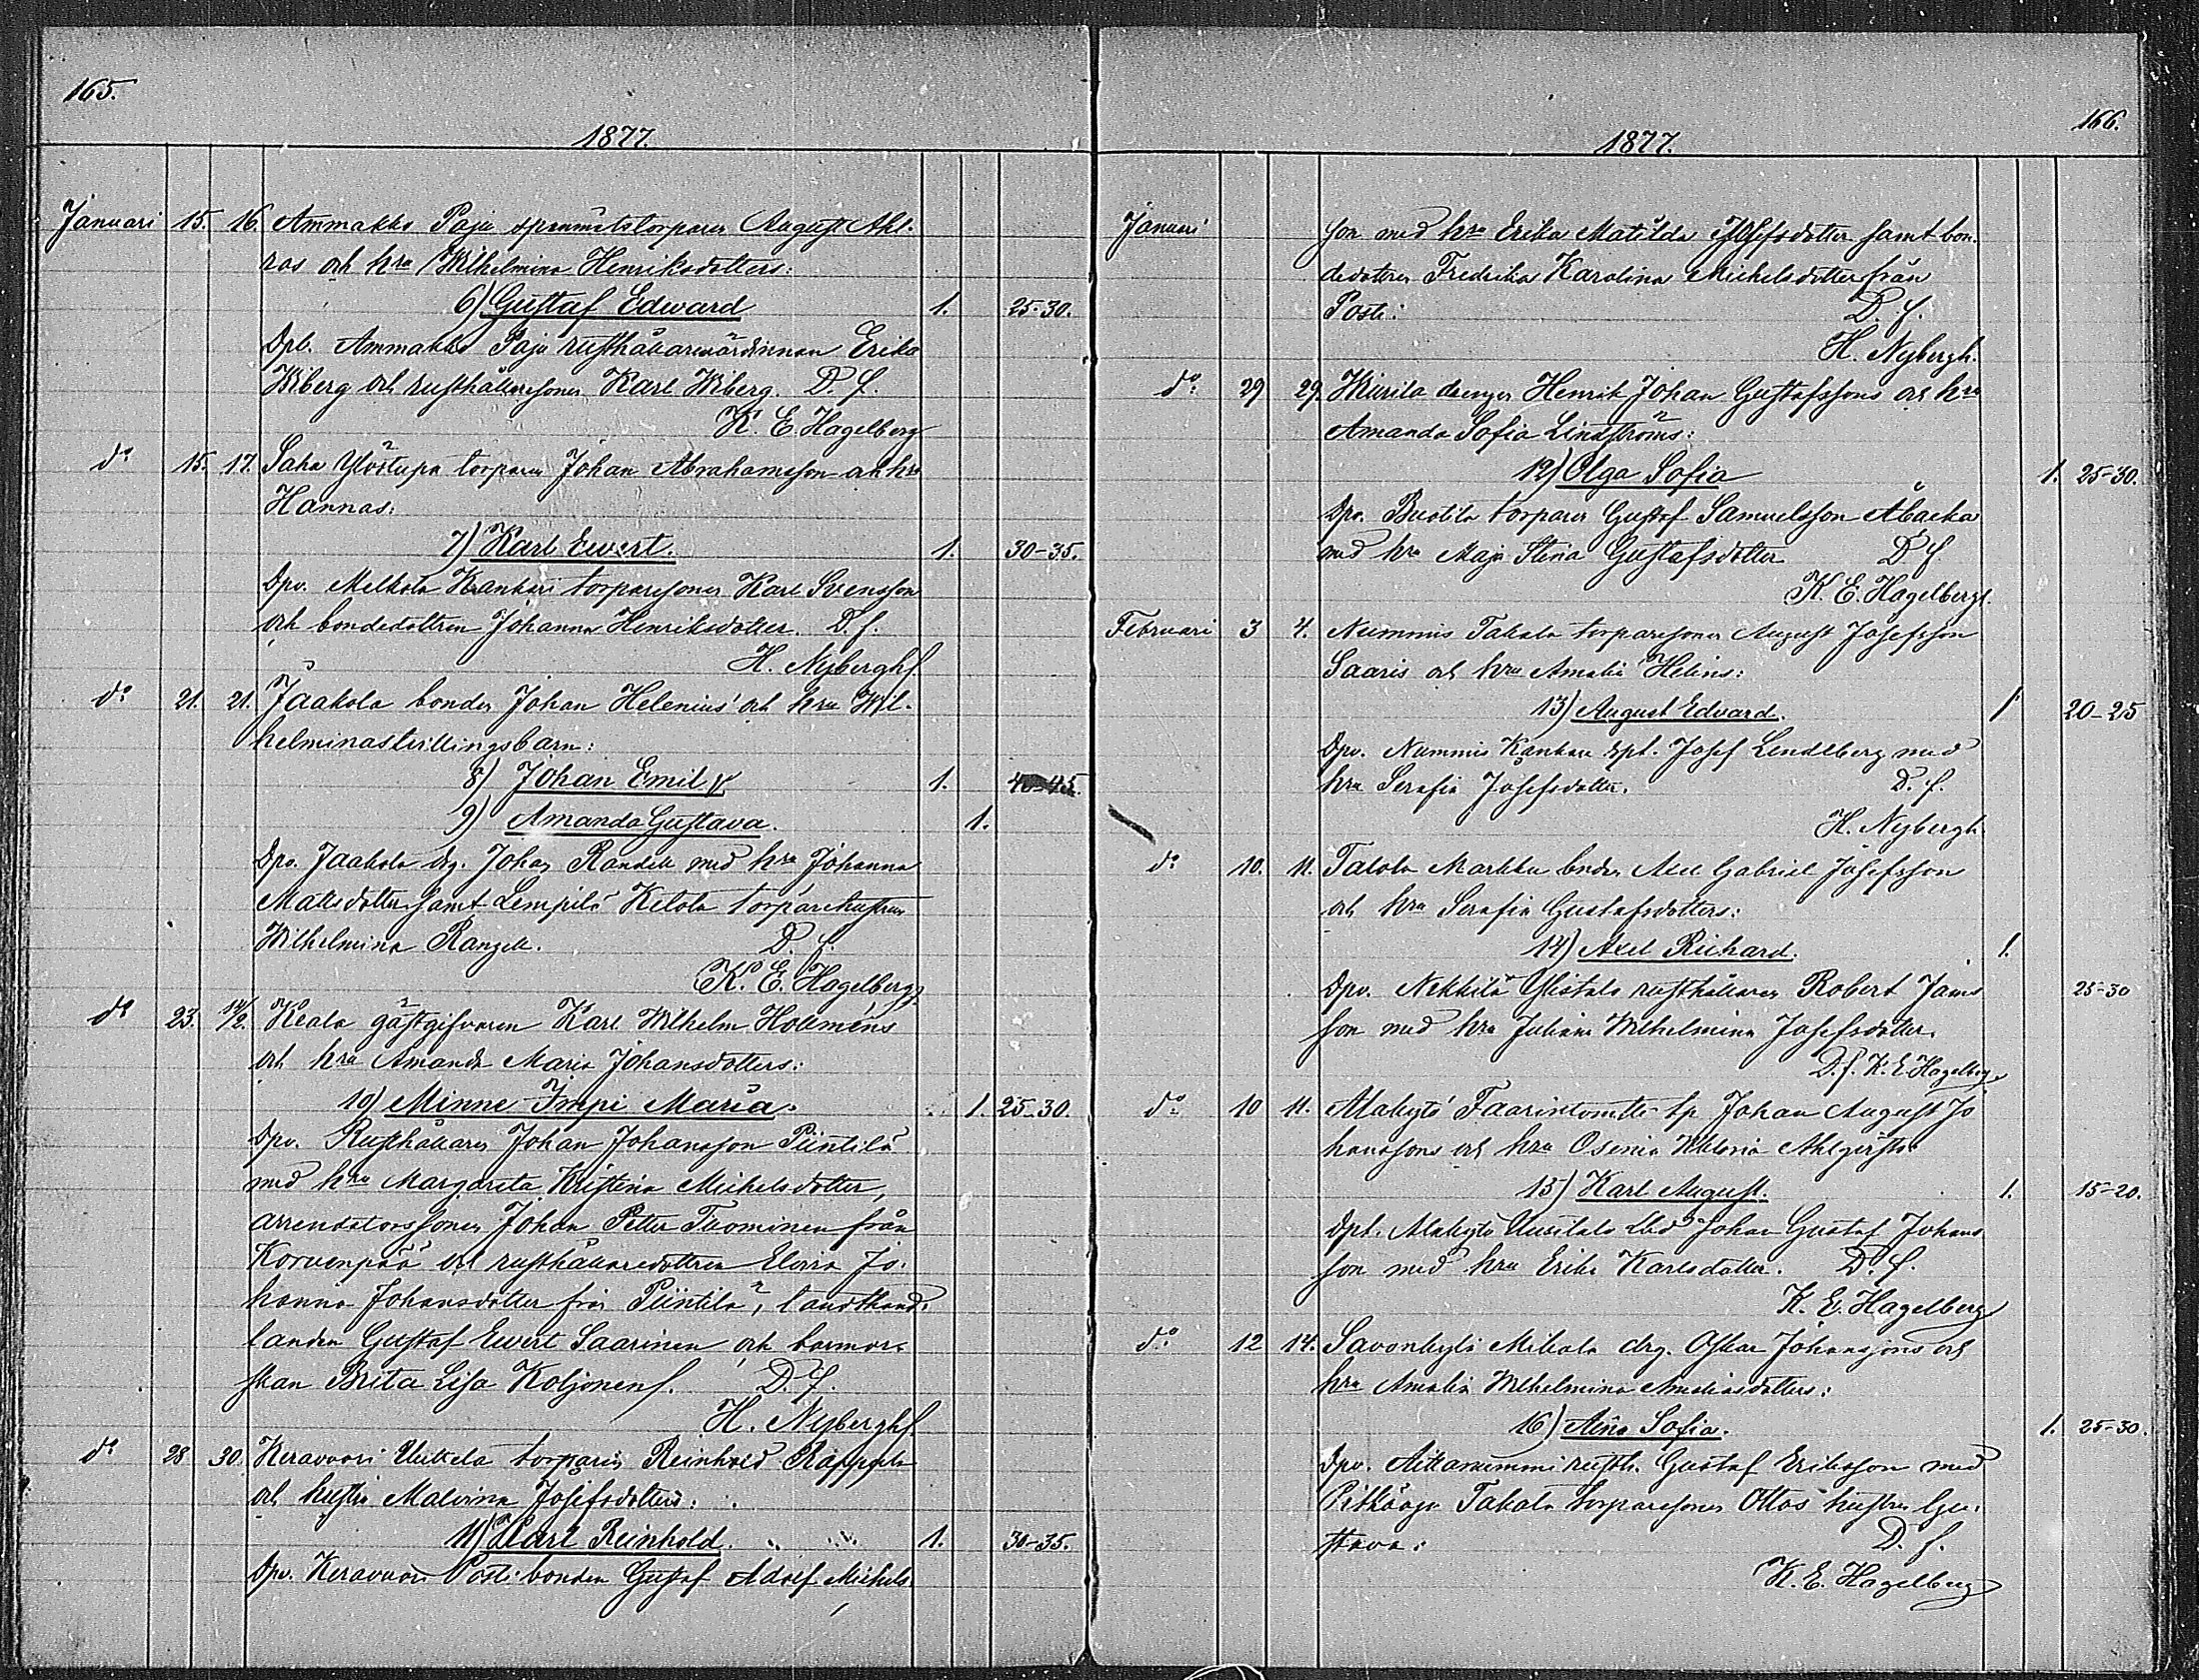 165.
1877.
Januari 15. 16. Ammakko Paju spanmålstorparen August Ahl-
ros och hru Wilhelmina Henriksdotters:
6) Gustaf Edward 1. 25-30.
Dpl. Ammakko Paju rusthållarevärdinnan Erika
Wiberg och rusthållaresonen Karl Wiberg. D. f.
K. E. Hagelberg
do 15. 17. Saha Ylöstupa torparen Johan Abrahamsson och hru
Hannas:
7) Karl Evert. 1. 30-35.
Dpv. Melkola Kankari torparesonen Karl Svensson
och bondedottren Johanna Henriksdotter. D. f.
H. Nyberghf.
do 21. 21. Jaakola bonden Johan Helenius' och hru Wil-
helminas tvillingsbarn:
8) Johan Emil 1. 40-45.
9) Amanda Gustava. 1.
Dpv. Jaakola drg. Johan Randell med hru Johanna
Mattsdotter samt Lempilä Ketola torparehustrun
Wilhelmina Rangell. D. f.
K. E. Hagelberg
do 23. 14/2. Keala gästgifvaren Karl Wilhelm Hollméns
och hru Amanda Maria Johansdotters:
10) Minne Impi Maria. 1. 25-30.
Dpv. Rusthållaren Johan Johansson Piintilä
med hru Margareta Kristina Michelsdotter,
arrendatorssonen Johan Petter Tuominen från
Korvenpää och rusthållaredottren Elvira Jo-
hanna Johansdotter från Piintilä, landthand-
landen Gustaf Evert Saarinen och barnmor-
skan Brita Lisa Koljonen. D. f.
H. Nyberghf.
do 28 30. Keravuori Uuttela torparen Reinhold
och hustru Malvina Josefsdotters:
11) Karl Reinhold. 1. 30-35.
Dpv. Keravuori Posti bonden Gustaf Adolf Michels-
166.
1877.
Januari son med hru Erika Matilda Josefsdotter samt bon-
dedottren Fredrika Karolina Michelsdotter från
Posti: D. f.
H. Nybergh.
do 29 29. Wiurila drengen Henrik Johan Gustafssons och hru
Amanda Sofia Lindströms:
12) Olga Sofia 1. 25-30.
Dpv. torparen Gustaf Samuelsson
med hru Maja Stina Gustafsdotter D f.
K. E. Hagelberg.
Februari 3 4. Nummis Takala torparesonen August Josefsson
Saaris och hru Amalia Helins:
13) August Edvard. 1 20-25
Dpv. Nummis Kankare Josef Lindberg med
hru Serafia Josefsdotter. D. f.
H. Nybergh.
do 10. 11. Talola Markku bonden Axel Gabriel Josefsson
och hru Serafia Gustafsdotters:
14) Axel Richard. 1.
Dpv. Nekkilä Ylistalo rusthållaren Robert Jans 25-30
son med hru Juliana Wilhelmina Josefsdotter.
D. f. K. E. Hagelberg
do 10 11. Alakytö Johan August Jo
hanssons och hru Viktoria Ahlqvists
15) Karl August. 1. 15-20.
Dpt. Alakytö Uusitalo Johan Gustaf Johans
son med hru Erika Karlsdotter. D. f.
K. E. Hagelberg
do 12 14. Savonkylä Mikola drg. Oskar Johanssons och
hru Amalia Wilhelmina Amaliasdotters:
16) Aina Sofia. 1. 25-30.
Dpv. Aittanummi rusth. Gustaf Eriksson med
Takala torparesonen Ottos hustru Gu-
stava: D. f.
K. E. Hagelberg